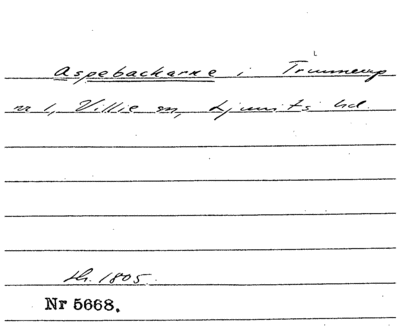 Aspebackarne i Trunnerup
no 1, Villie sn, Ljunits hd.
sk. 1805.
Nr 5668.